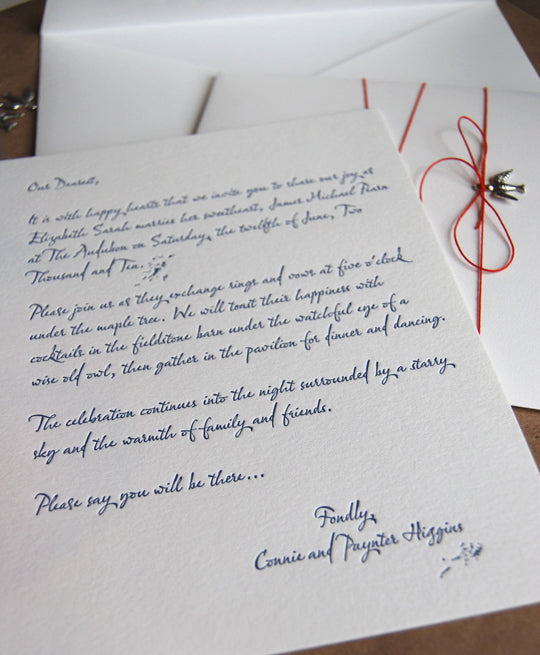 Our Dearest,
It is with happy hearts that we invite you to share our joy as
Elizabeth Sarah marries her sweetheart, James Michael Fearn
at The Audubon on Saturday, the twelfth of June, Two
Thousand and Ten.
Please join us as they exchange rings and vows at five o'clock
under the maple tree. We will toast their happiness with
cocktails in the fieldstone barn under the watchful eye of a
wise old owl, then gather in the pavilion for dinner and dancing.
The celebration continues into the night surrounded by a starry
sky and the warmth of family and friends.
Please say you will be there...
Fondly,
Connie and Paynter Higgins